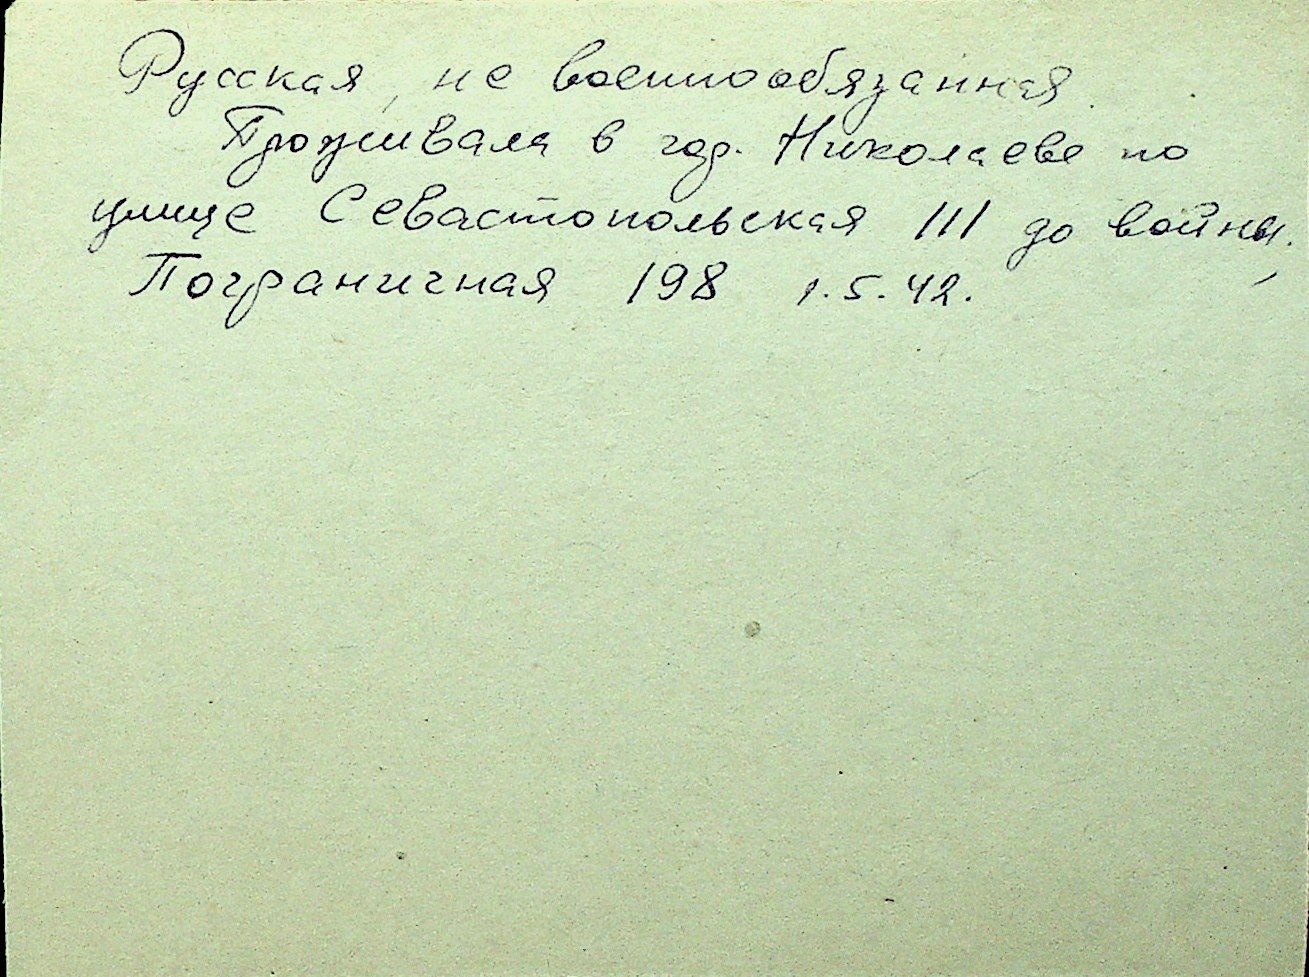 Русская, не военнообязанная.
Проживала в гор. Николаеве по
улице Севастопольская 111 до войны.
Пограничная 198 1.5.42.